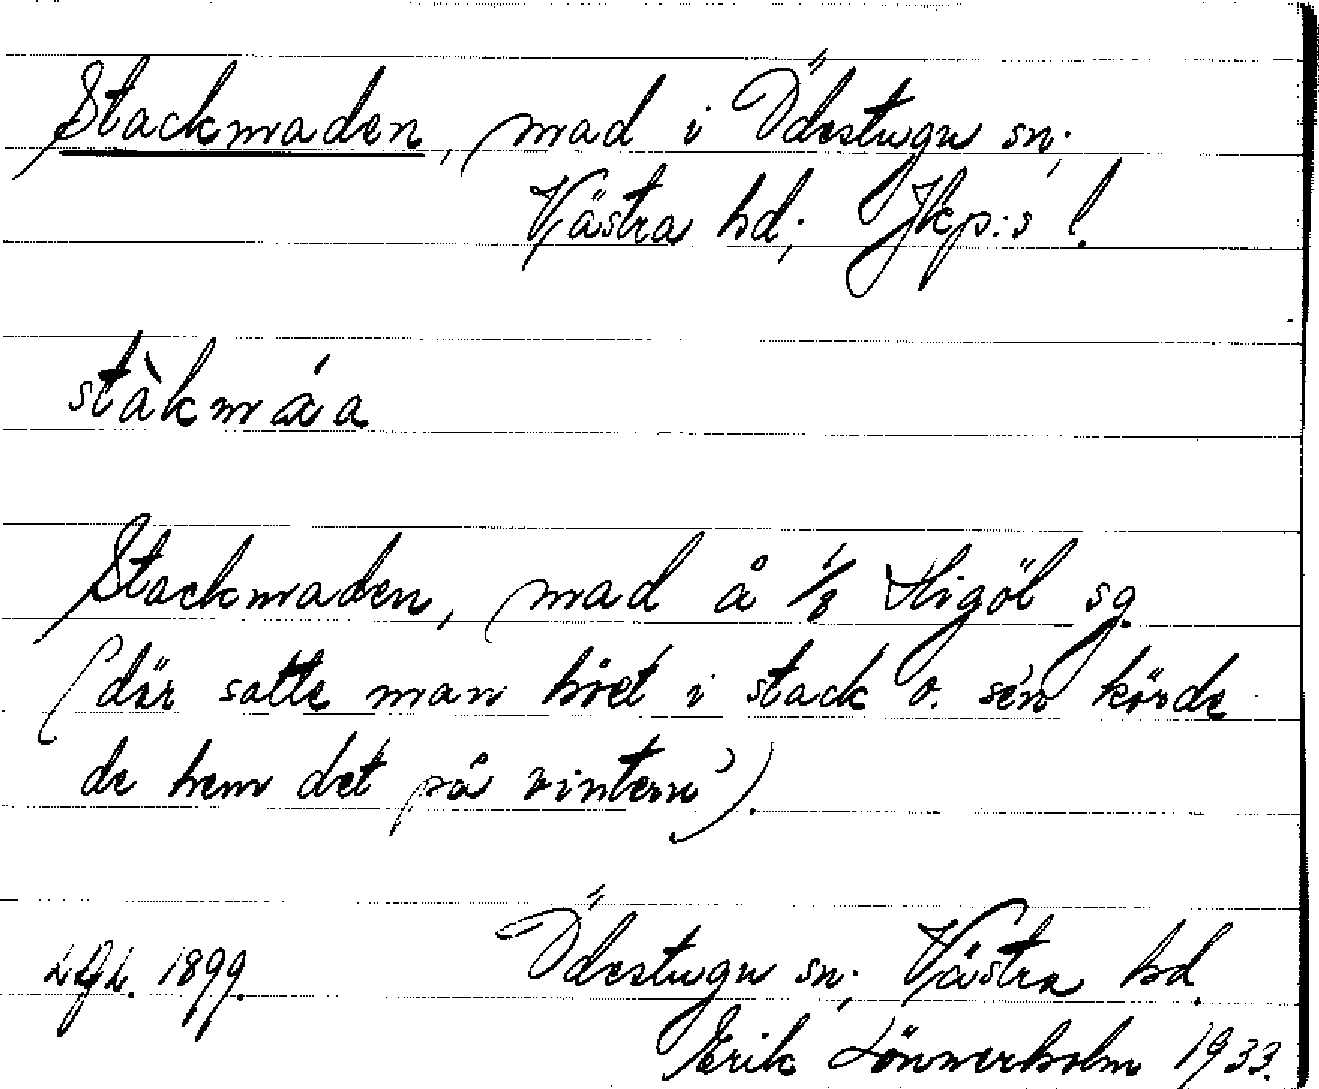 Stackmaden, mad i Ödestugu sn;
Västra hd; Jkp:s l.
stàkmáa
Stackmaden, mad å 1/8 Stigöl sg.
(där satte man höet i stack o. se'n körde
de hem det på vintern')
1899. Ödestugu sn; Västra hd.
Erik Lönnerholm 1933.